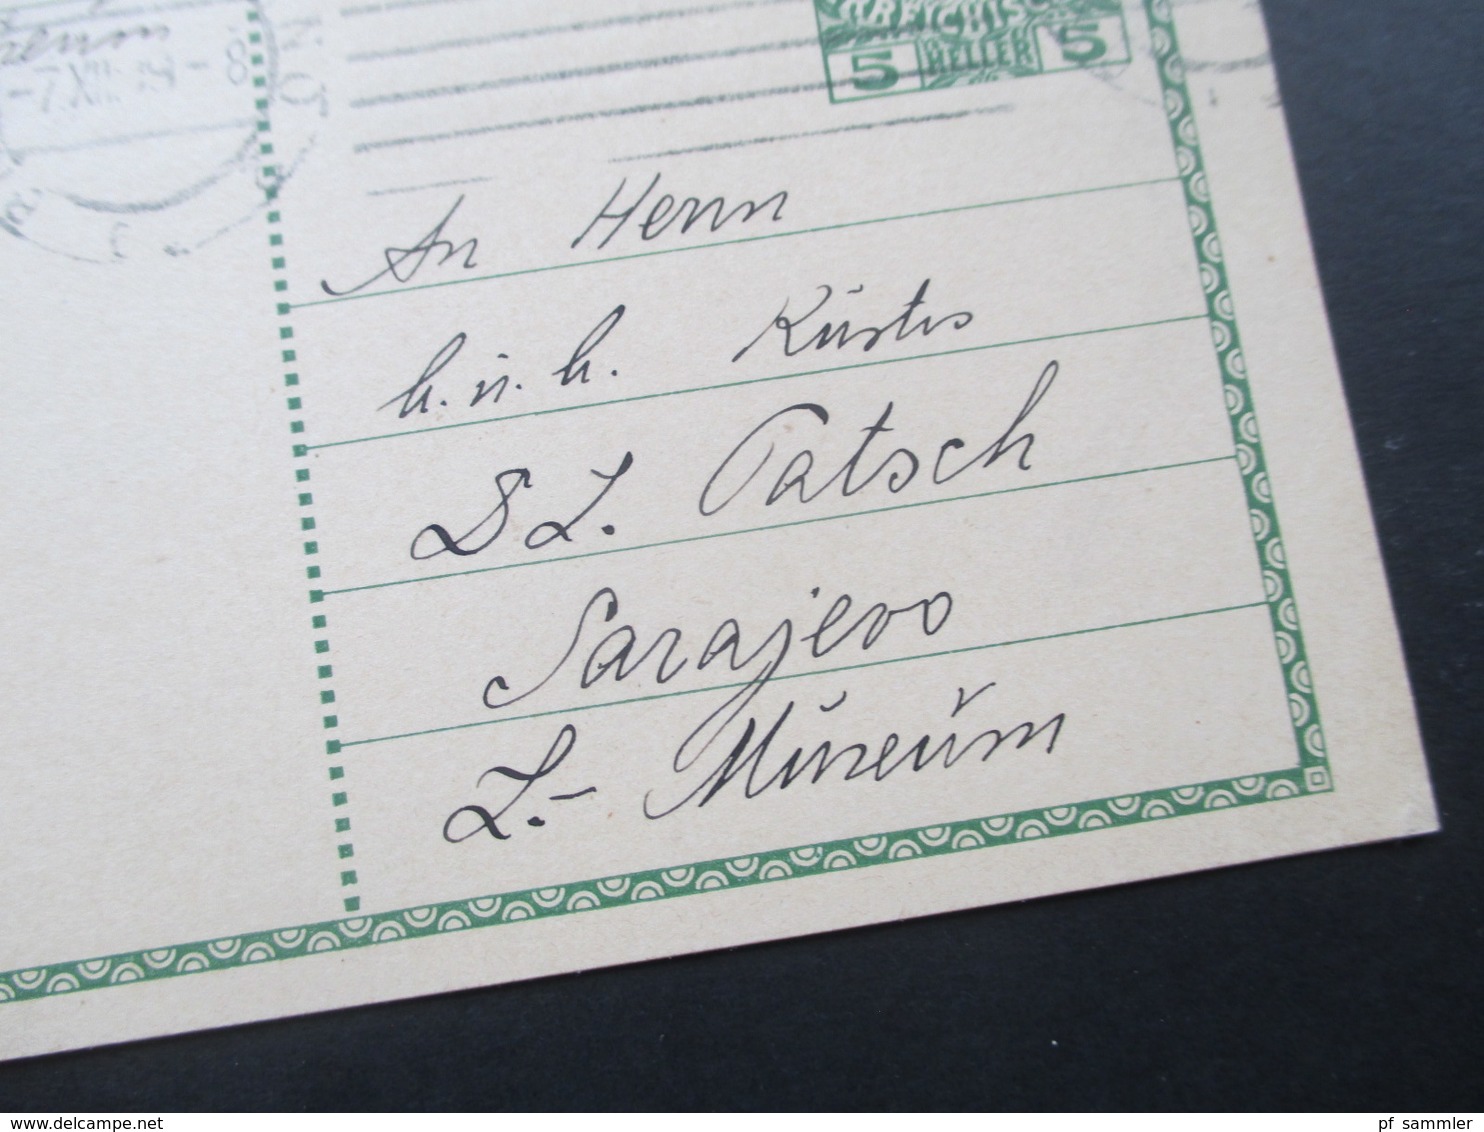 -7.XII. -8
REICHISC
5 HELLER 5
An Herrn
k. u. k. Kustos
D Z. Patsch
Sarajevo
L.- Museum
www.delcampe.net
pf_sammler